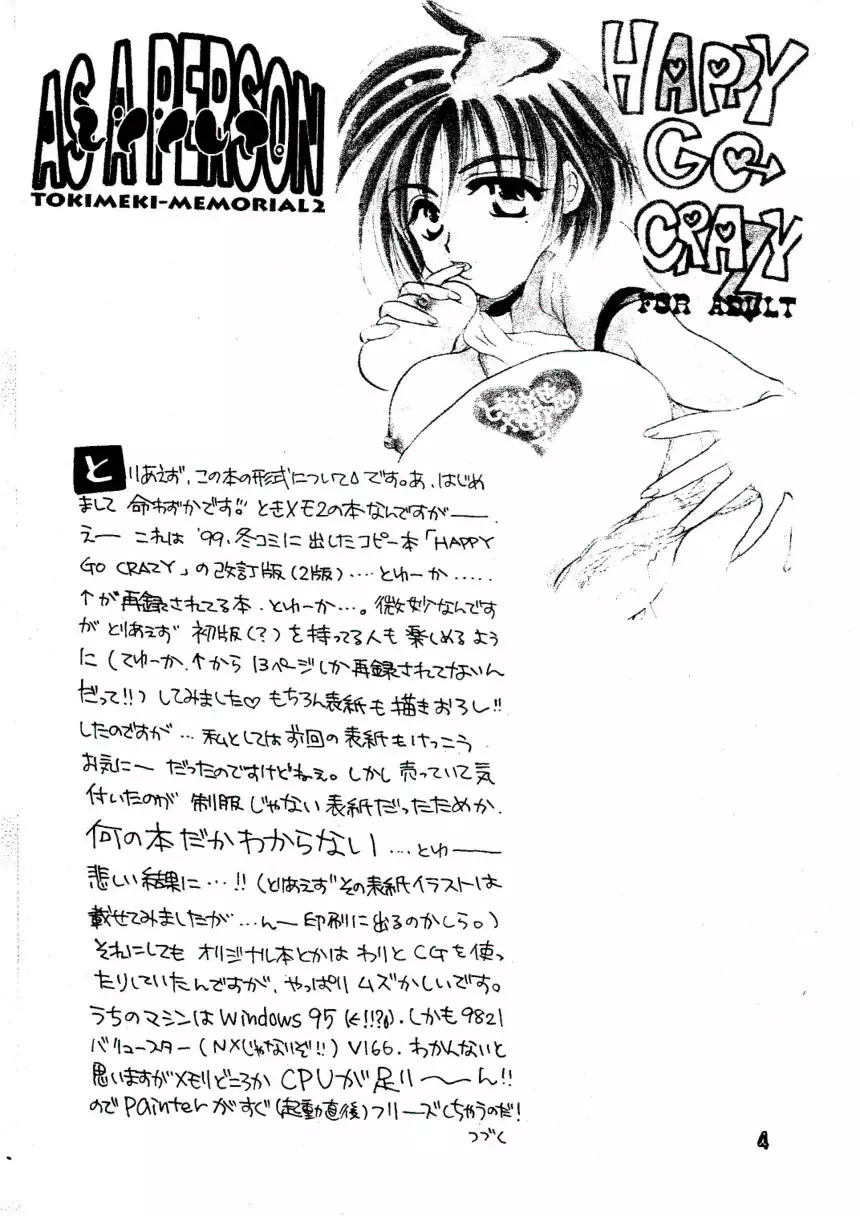 AS A PERSON
TOKIMEKI-MEMORIAL2
HAPPY
GO
CRAZY
FOR ADULT
とりあえず、この本の形式についてです。あ、はじめ
まして 命わずかです。ときメモ2の本なんですが――.
えー これは '99.冬コミに出したコピー本「HAPPY
GO CRAZY」の改訂版(2版)‥‥とゆーか‥‥‥
↑が再録されてる本.とゆーか‥‥。微妙なんです
が とりあえず 初版(?)を持ってる人も楽しめるよう
に(てゆーか、↑から13ページしか再録されてないん
だって!!)してみました♡ もちろん表紙も描きおろし!!
したのですが… 私としては前回の表紙もけっこう
お気に― だったのですけどねぇ。しかし売っていて気
付いたのが 制服じゃない表紙だったためか、
何の本だかわからない‥‥とゆ――
悲しい結果に…!!(とりあえずその表紙イラストは
載せてみましたが…ん― 印刷に出るのかしら。)
それにしても オリジナル本とかは わりと CGを使っ
たりしていたんですが、やっぱりムズかしいです。
うちのマシンは Windows 95 (←!!?).しかも9821
バリュースター(NXじゃないぞ!!)V166. わかんないと
思いますがメモリどころか CPUが足り〜〜ん!!
のでPainterがすぐ(起動直後)フリーズしちゃうのだ!
つづく
4